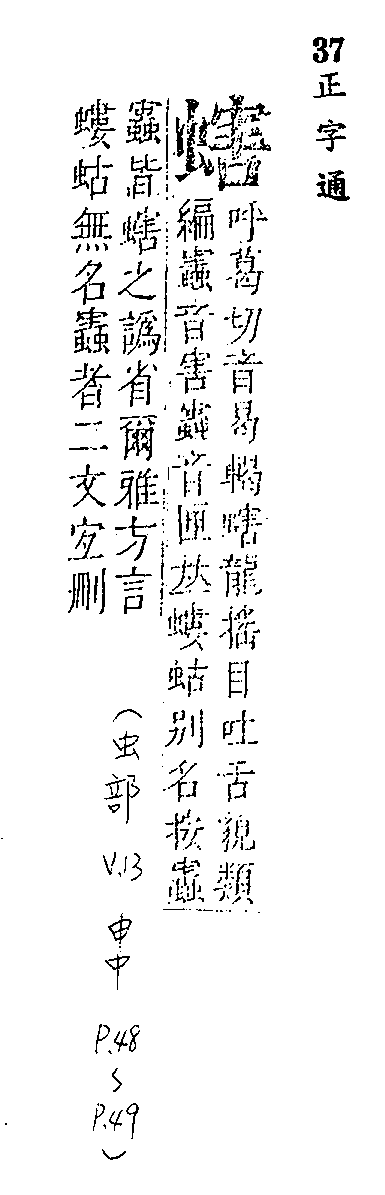 37 正字通
螛 呼葛切音曷輵螛龍搖目吐舌貌類
編音害音匣𠀤螻蛄別名按
皆螛之譌省爾雅方言
螻蛄無名者二文宐刪
（虫部 V.13 申中 P.48 ~ P.49）